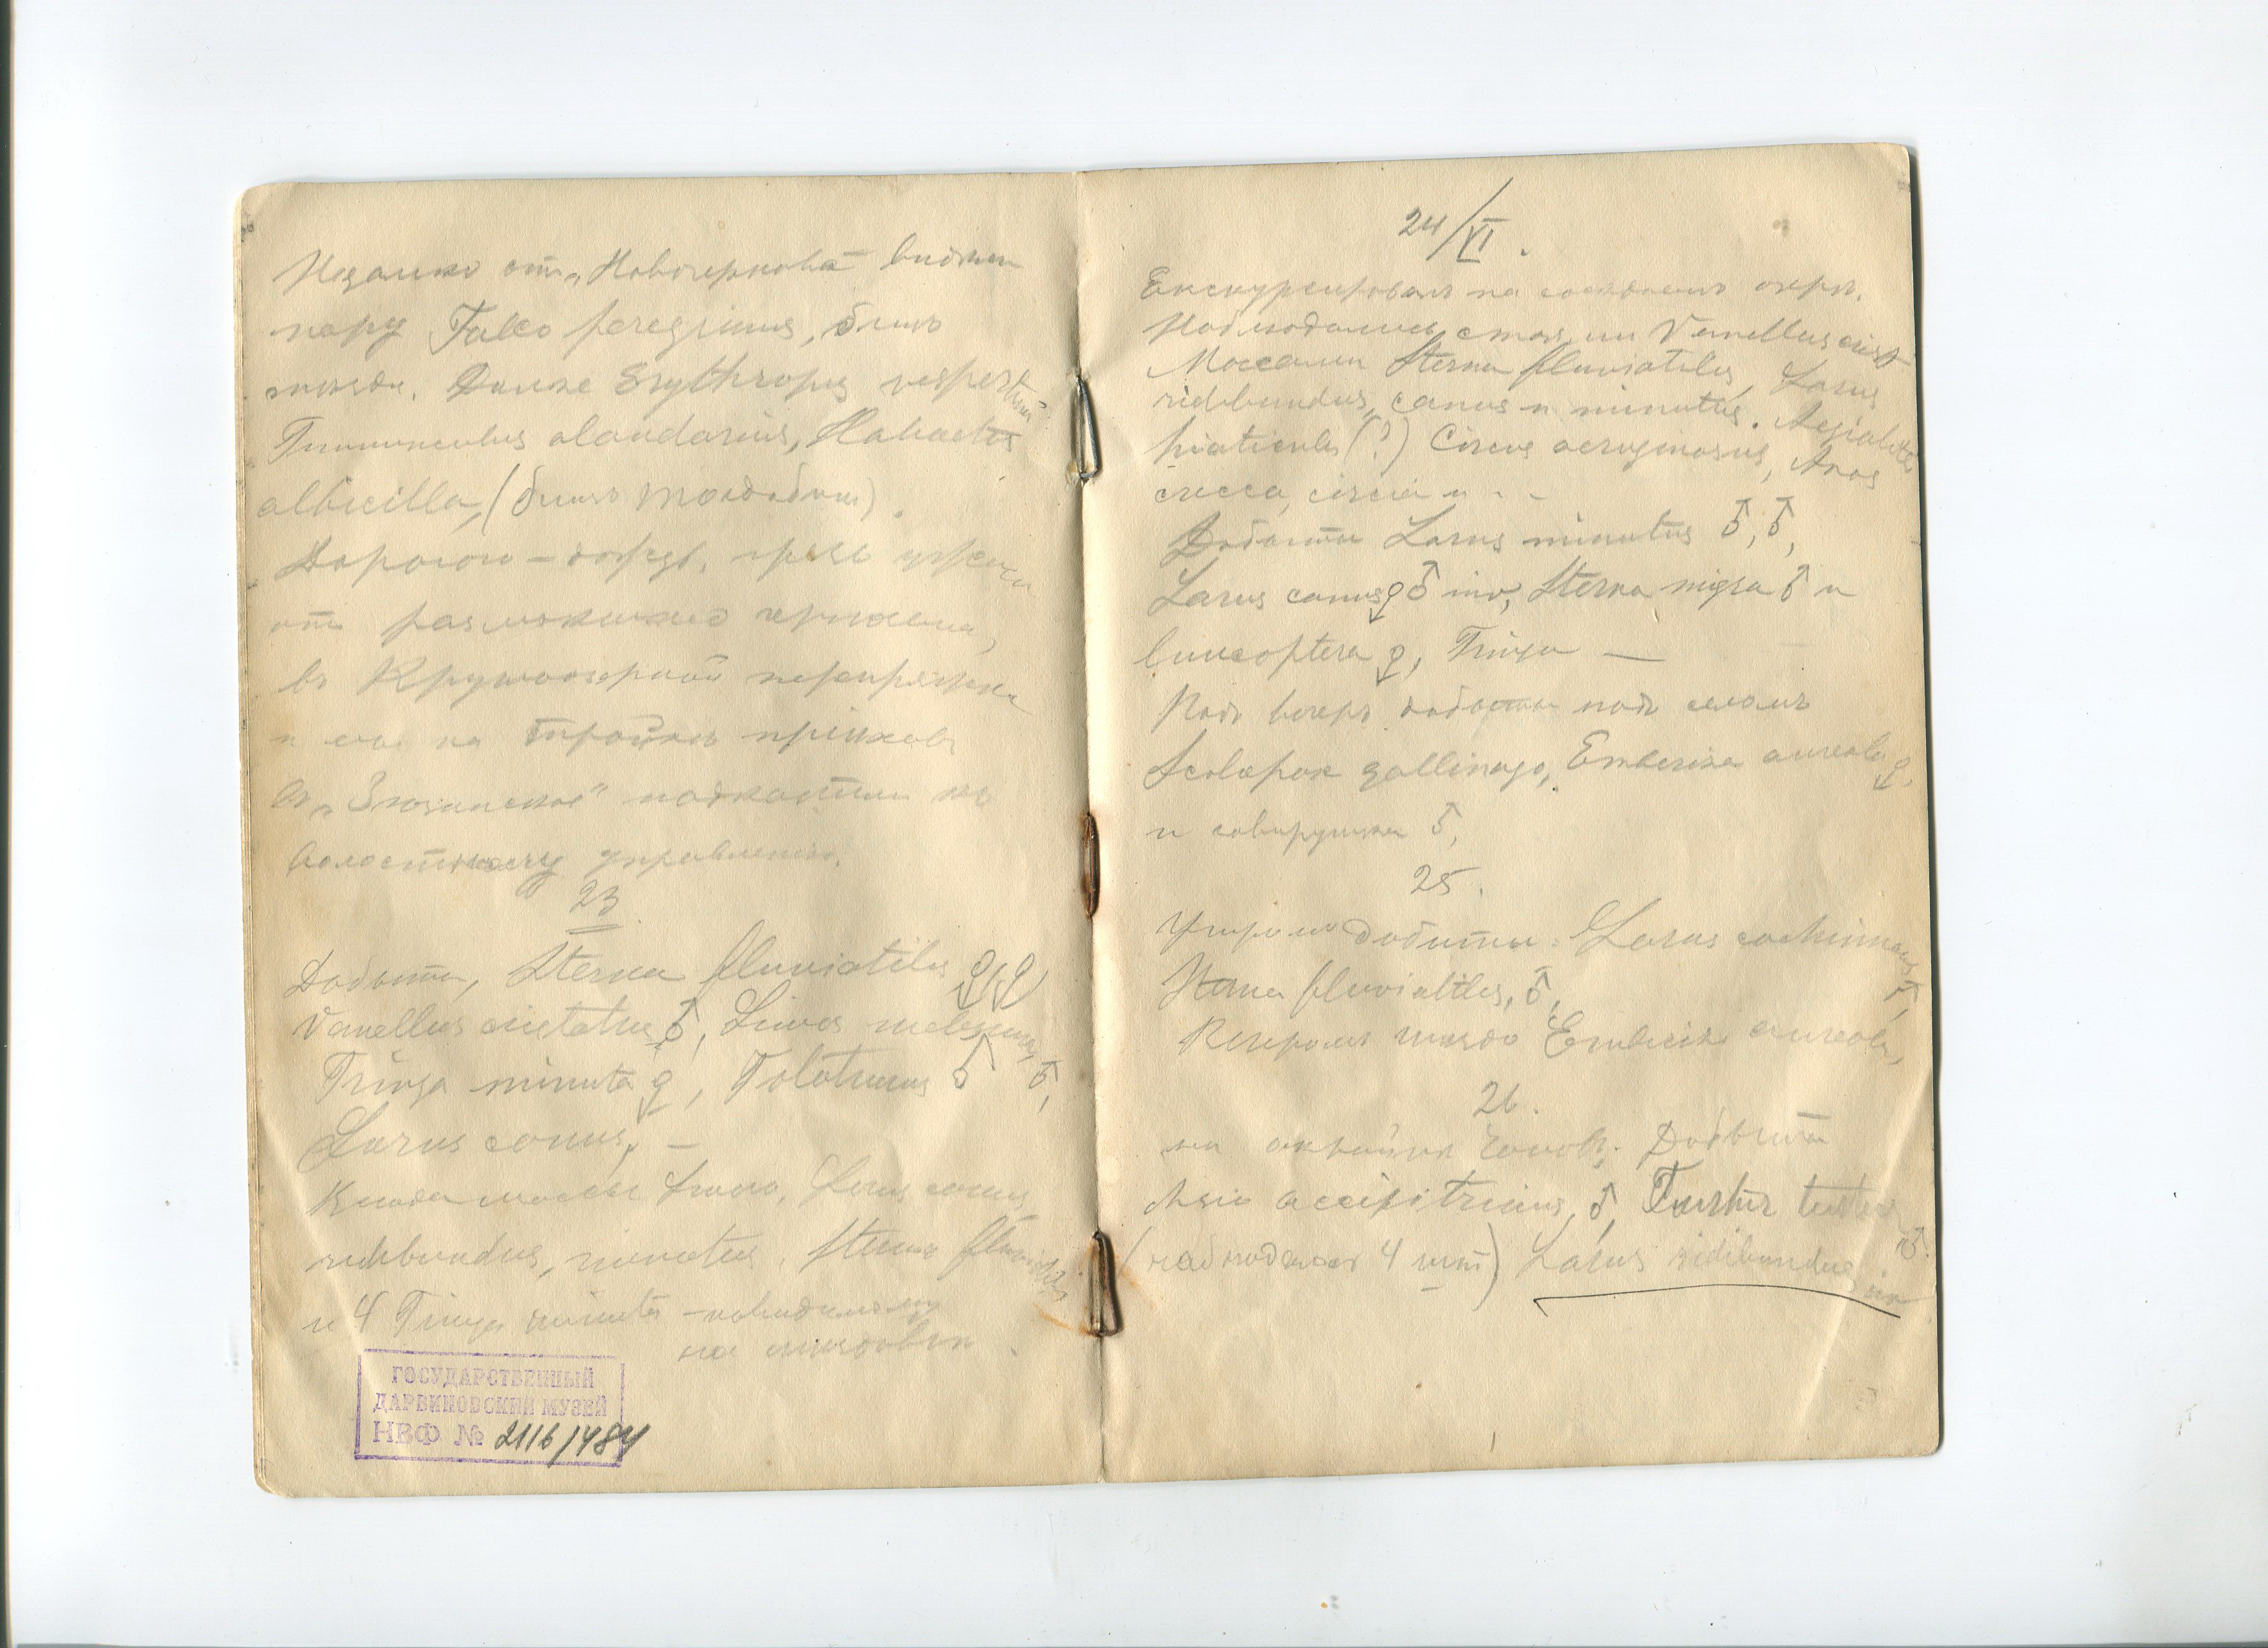 Недалеко отъ „Новочеркова" видѣли
пару Falco peregrinus, близъ
гнѣзда. Далѣе Erythropus vespertinus
Tinnunculus alaudarius, Haliaetos
albicilla, (близъ
Дорогою – дождь, грязь
отъ размокшаго чернозема,
въ Кругоозерной перепряжка
и на тройкѣ пріѣхавъ
въ „Зюзинское" подкатили къ
волостному управленію.
23
Добыты, Sterna fluviatilis ♀, ♀
Vanellus cristatus ♂, Limosa melanura ♂,
Tringa minuta ♀, Totanus ♂
Larus canus, –
массы Larus canus,
ridibundus, minutus, Sterna fluviatilis
и 4 Tringa minuta – повидимому
на гнѣздовьи.
ГОСУДАРСТВЕННЫЙ
ДАРВИНОВСКИЙ МУЗЕЙ
НВФ № 2116/1484
24/VI.
Екскурсировалъ на озерѣ.
Наблюдались стаями Vanellus crist
Массами Sterna fluviatilis, Larus
ridibundus, canus и minutus. Aegialites
hiaticula (?) Circus aeruginosus, Anas
crecca, circia и - -
Добыты Larus minutus ♂, ♂,
Larus canus ♀ ♂ juv, Sterna nigra ♂ и
leucoptera ♀, Tringa —
Подъ вечеръ добыты подъ селомъ
Scolopax gallinago, Emberiza aureola ♀,
и ♂,
25.
Утромъ добыты: Larus cachinnans ♂,
Sterna fluviatilis, ♂,
Вечеромъ гнѣздо Emberiza aureola,
26.
на добыты
Asio accipitrinus, ♂, Turtur turtur ♂.
(наблюдалось 4 шт) Larus ridibundus